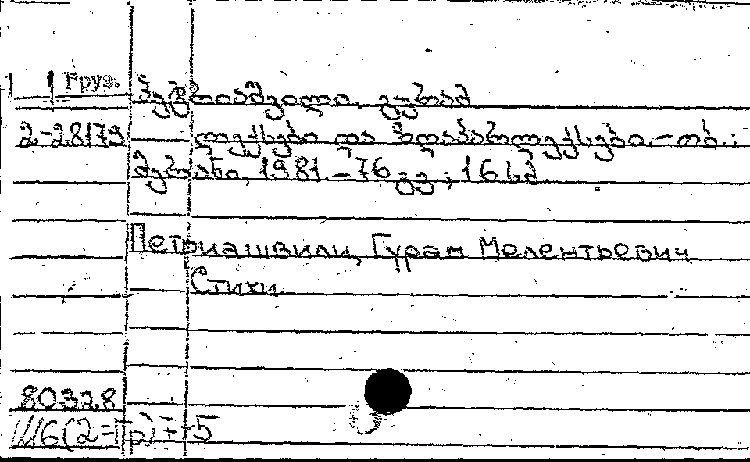 Груз.
პეტრიაშვილი, გურამ
2-28179 ლექსები და ზღაპარლექსები.-თბ.:
მერანი, 1981.-76 გვ.; 16 სმ.
Петриашвили, Гурам Мелентьевич
Стихи.
80328
Ш6(2=Гр)7-5